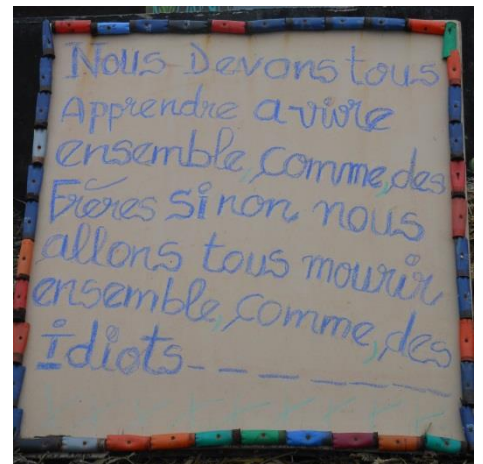 Nous Devons tous
Apprendre a vivre
ensemble, comme, des
Frères sinon nous
allons tous mourir
ensemble, comme, des
idiots_ _ _ _ _ _